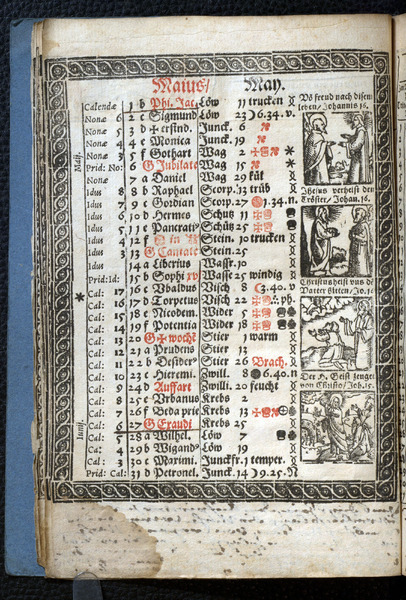 Maius/ May.
Calendæ 1 b Phi. Jac. Löw 11 trucken
Nonæ 6 2 c Sigmund Löw 23 6.34.v.
Nonæ 5 3 d erfind. Junck. 6
Nonæ 4 4 e Monica Junck. 19
Nonæ 3 5 f Gothart Wag 2
Prid: No: 6 G Jubilate Wag 15
Nonæ 7 a Daniel Wag 29 kült
Idus 8 8 b Raphael Scorp. 13 trüb
Idus 7 9 c Gordian Scorp. 27 1.34.n.
Idus 6 10 d Hermes Schütz 11
Idus 5 11 e Pancratz Schütz 25
Idus 4 12 f Stein. 10 trucken
Idus 3 13 G Cantate Stein. 25
Idus 14 a Liberius Wasse. 10
Prid: Id: 15 b Sophi Wasse 25 windig
Cal: 17 16 c Ubaldus Visch 8 3.40.v
Cal: 16 17 d Torpetus Visch 22 ph.
Cal: 15 18 e Nicodem. Wider 5
Cal: 14 19 f Potentia Wider 18
Cal: 13 20 G woche Stier 1 warm
Cal: 12 21 a Prudens Stier 13
Cal: 11 22 b Desider Stier 26 Brach.
Cal: 10 23 c Hieremi. Zwill. 8 6.40.n
Cal: 9 24 d Auffart Zwill. 20 feucht
Cal: 8 25 e Urbanus Krebs 2
Cal: 7 26 f Beda prie Krebs 13
Cal: 6 27 G Exaudi Krebs 25
Cal: 5 28 a Wilhel. Löw 7
Ca: 4 29 b Wigand Löw 19
Cal: 3 30 c Maximi. Junckfr. 1 temper.
Prid: Cal: 31 d Petronel. Junck. 14 9.25.N
Maij.
Junij.
Us freud nach disem
leben/ Johannis 16.
Jhesus verheist den
Tröster/ Johan. 16.
Christus heist uns dē
Vatter bitten/ Jo. 16
Der H. Geist zeuget
von Christo/ Joh. 15.